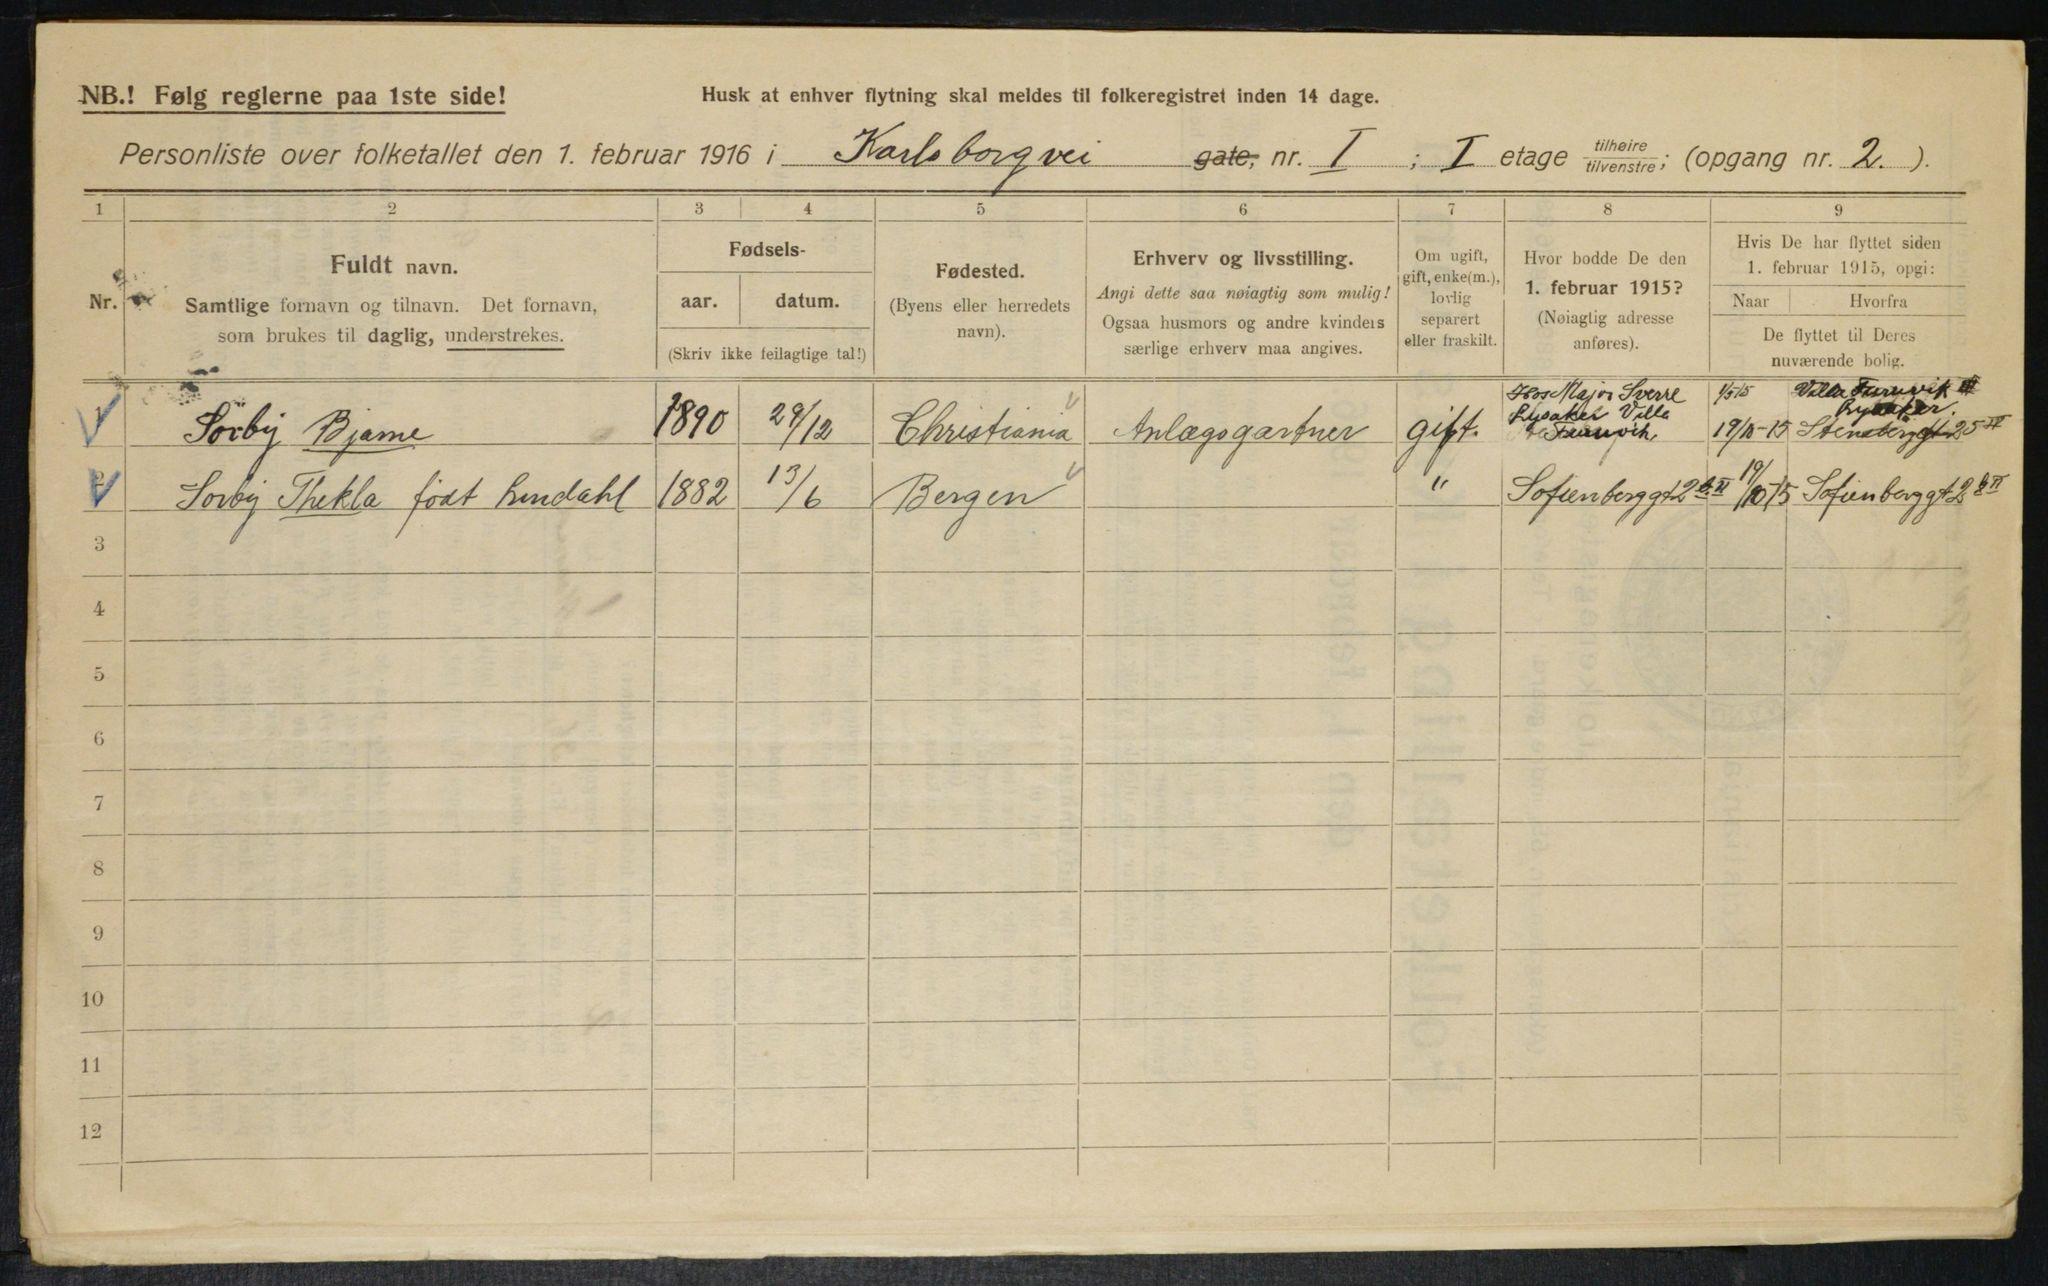 NB.! Følg reglerne paa 1ste side!
Husk at enhver flytning skal meldes til folkeregistret inden 14 dage.
Personliste over folketallet den 1. februar 1916 i Karlsborgvei gate, nr. I ; I etage tilhøire tilvenstre; (opgang nr. 2. ).
1 2 3 4 5 6 7 8 9
Nr.
Fuldt navn.
Samtlige fornavn og tilnavn. Det fornavn,
som brukes til daglig, understrekes.
Fødsels-
aar. datum.
(Skriv ikke feilagtige tal!)
Fødested.
(Byens eller herredets
navn).
Erhverv og livsstilling.
Angi dette saa nøiagtig som mulig!
Ogsaa husmors og andre kvinders
særlige erhverv maa angives.
Om ugift,
gift, enke(m.),
lovlig
separert
eller fraskilt.
Hvor bodde De den
1. februar 1915?
(Nøiagtig adresse
anføres).
Hvis De har flyttet siden
1. februar 1915, opgi:
Naar Hvorfra
De flyttet til Deres
nuværende bolig.
1 Sørby Bjarne 1890 29/12 Christiania Anlægsgartner gift. Hos Major Sverre
Lysaker Villa
Furuvik 1/5 15 Villa Furuvik
Lysaker.
19/10-15 Stensberggt 25 IV
2 Sørby Thekla født Lindahl 1882 13/6 Bergen " Sofienberggt 2 b II 19/10-15 Sofienberggt 2 b II
3
4
5
6
7
8
9
10
11
12